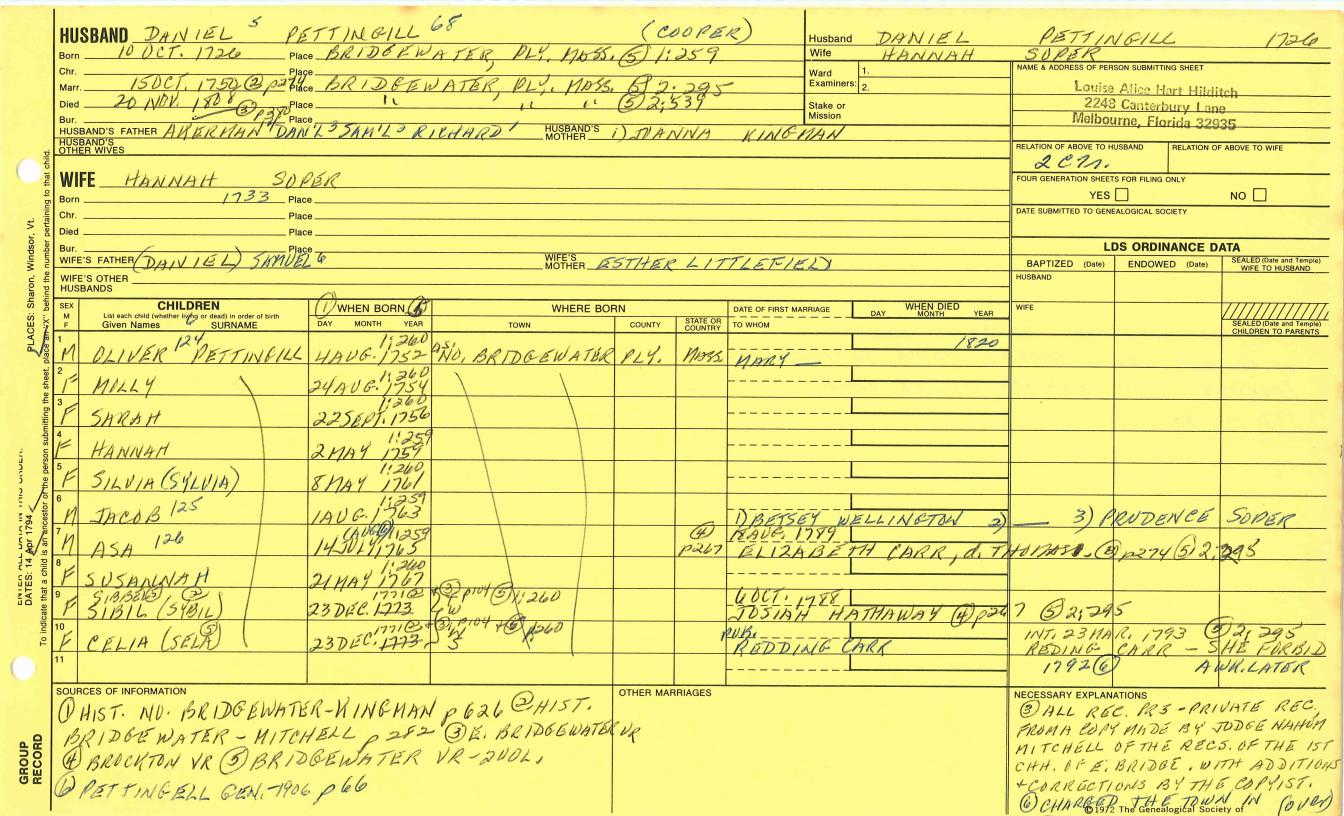 HUSBAND DANIEL 5 PETTINGILL 68 (COOPER)
Born 10 OCT. 1726 Place BRIDGEWATER, PLY. MASS. ⑤ 1:259
Chr. Place
Marr. 15 OCT. 1750 ② p274 Place BRIDGEWATER, PLY. MASS. ⑤ 2:295
Died 20 NOV. 1808 Place " " " ⑤ 2:539
Bur. ③ p380 Place
HUSBAND'S FATHER AKERMAN 4 DAN'L 3 SAM'L 2 RICHARD 1 HUSBAND'S MOTHER 1) JOANNA KINGMAN
HUSBAND'S OTHER WIVES
WIFE HANNAH SOPER
Born 1733 Place
Chr. Place
Died Place
Bur. Place
WIFE'S FATHER (DANIEL) SAMUEL 6 WIFE'S MOTHER ESTHER LITTLEFIELD
WIFE'S OTHER HUSBANDS
Husband DANIEL PETTINGILL 1726
Wife HANNAH SOPER
Ward Examiners: 1.
2.
Stake or Mission
NAME & ADDRESS OF PERSON SUBMITTING SHEET
Louise Alice Hart Hilditch
2248 Canterbury Lane
Melbourne, Florida 32935
RELATION OF ABOVE TO HUSBAND RELATION OF ABOVE TO WIFE
FOUR GENERATION SHEETS FOR FILING ONLY
YES NO
DATE SUBMITTED TO GENEALOGICAL SOCIETY
LDS ORDINANCE DATA
BAPTIZED (Date) ENDOWED (Date) SEALED (Date and Temple) WIFE TO HUSBAND
HUSBAND
WIFE
SEALED (Date and Temple) CHILDREN TO PARENTS
SEX M F CHILDREN ① WHEN BORN ⑥ WHERE BORN DATE OF FIRST MARRIAGE WHEN DIED
List each child (whether living or dead) in order of birth
Given Names 6 SURNAME DAY MONTH YEAR TOWN COUNTY STATE OR COUNTRY TO WHOM DAY MONTH YEAR
1 1:260 1820
M OLIVER 124 PETTINGILL 4 AUG. 1752 NO. BRIDGEWATER PLY. MASS. MARY —
2 1:260
F MILLY 24 AUG. 1754
3 1:260
F SARAH 22 SEPT. 1756
4 1:259
F HANNAH 2 MAY 1759
5 1:260
F SILVIA (SYLVIA) 8 MAY 1761
6 1:259
M JACOB 125 1 AUG. 1763 1) BETSEY WELLINGTON 2) — 3) PRUDENCE SOPER
7 (AUG ⑥) 1:259 ④ AUG. 1789
M ASA 126 14 JULY 1765 p267 ELIZABETH CARR, d. THOMAS. p274 ⑤ 2:295
8 1:260
F SUSANNAH 21 MAY 1767
9 SIBBEL 1771 ② + ③ p104 ⑤ 1:260 6 OCT. 1788
F SIBIL (SYBIL) 23 DEC. 1773 TW JOSIAH HATHAWAY ④ p267 ⑤ 2:295
10 1771 ② + ③ p104 + p260 INT. 23 MAR. 1793 ⑤ 2:295
F CELIA (SELA ⑤) 23 DEC. 1773 REDDING CARR REDING CARR - SHE FORBID
11 1792 ⑥ AWK. LATER
SOURCES OF INFORMATION
① HIST. NO. BRIDGEWATER-KINGMAN p626 ② HIST.
BRIDGEWATER - MITCHELL p282 ③ E. BRIDGEWATER VR
④ BROCKTON VR ⑤ BRIDGEWATER VR-2VOL.
⑥ PETTINGELL GEN. 1906 p66
OTHER MARRIAGES
NECESSARY EXPLANATIONS
③ ALL REC. PR3-PRIVATE REC,
FROM A COPY MADE BY JUDGE NAHUM
MITCHELL OF THE RECS. OF THE 1ST
CHH. OF E. BRIDGE. WITH ADDITIONS
+ CORRECTIONS BY THE COPYIST.
⑥ CHARGED THE TOWN IN (OVER)
©1972 The Genealogical Society of
PLACES: Sharon, Windsor, Vt.
DATES: 14 Apr 1794
To indicate that a child is an ancestor of the person submitting the sheet, place an "X" behind the number pertaining to that child.
GROUP RECORD